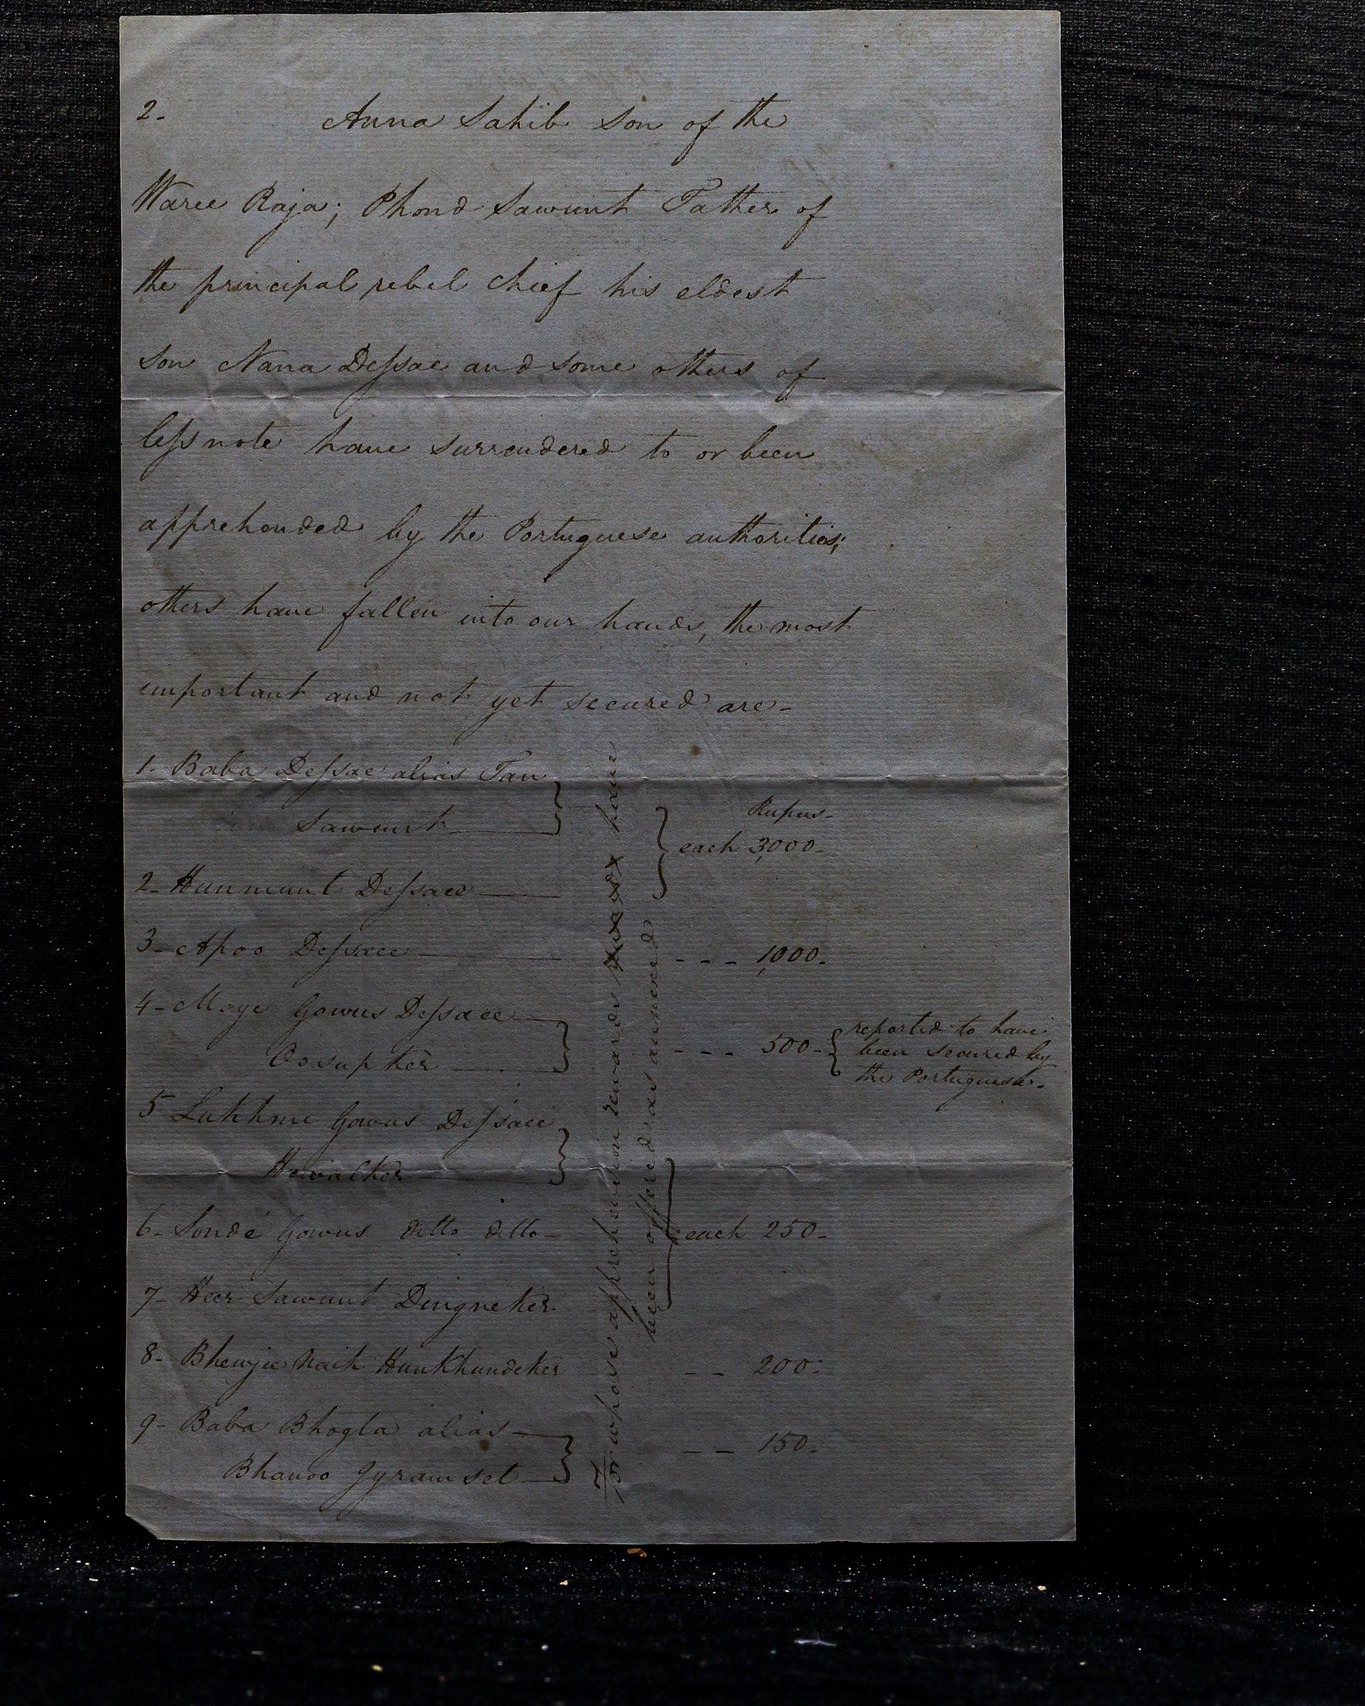 2- Anna Sahib son of the
Waree Raja; Phond Sawunt Father of
the principal rebel chief his eldest
son Nana Dessae and some others of
less note have surrendered to or been
apprehended by the Portuguese authorities;
others have fallen into our hands, the most
important and not yet secured are-
1- Baba Dessae alias Tan
Sawunt
2- Hunmunt Dessaee
3- Apoo Dessaee
4- Moye Gowus Dessaee
Oosupker
5 Lukhme Gowus Dessaee
Hewalker
6- Sonde Gowus ditto ditto-
7- Heer Sawunt Dingneker-
8- Bhewjee Naik Hunkhundeker
9- Baba Bhogta alias
Bhanoo Gyramset
For whose apprehension rewards have
been offered as annexed
Rupees-
each 3,000-
- - - 1,000-
- - - 500-
reported to have
been secured by
the Portuguese-
each 250-
- - 200-
- - 150-